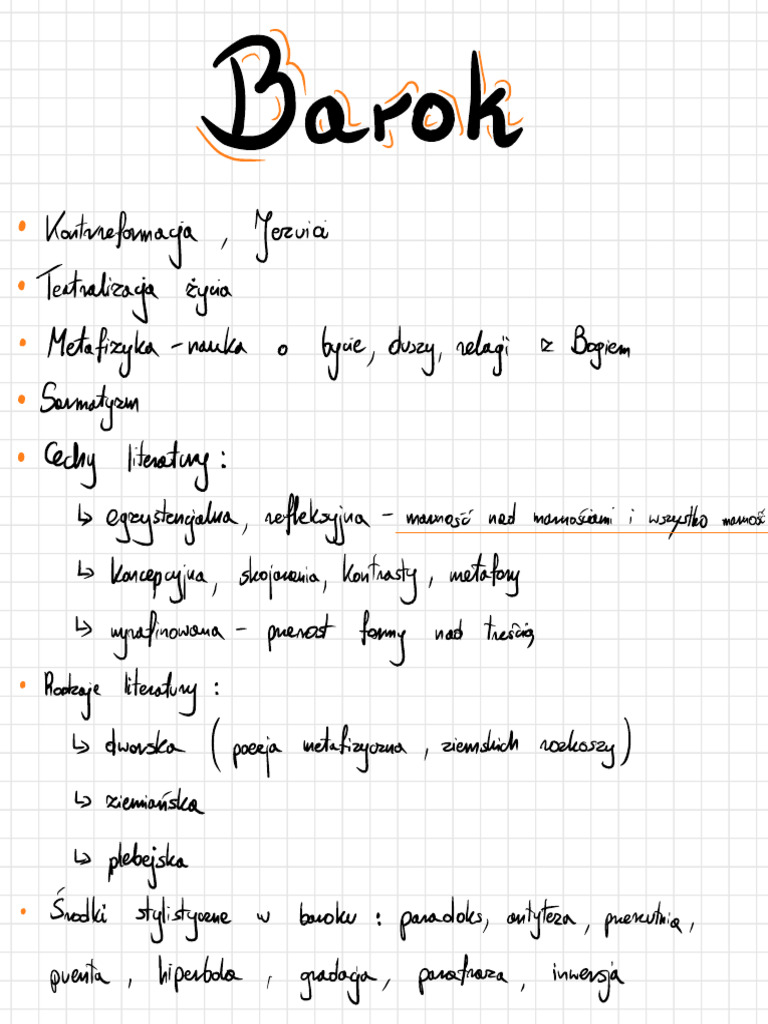 Barok
• Kontrreformacja, Jezuici
• Teatralizacja życia
• Metafizyka - nauka o bycie, duszy, relacji z Bogiem
• Sarmatyzm
• Cechy literatury:
↳ egzystencjalna, refleksyjna - marność nad marnościami i wszystko marność
↳ koncepcyjna, skojarzenia, kontrasty, metafory
↳ wyrafinowana - przerost formy nad treścią
• Rodzaje literatury:
↳ dworska (poezja metafizyczna, ziemskich rozkoszy)
↳ ziemiańska
↳ plebejska
• Środki stylistyczne w baroku: paradoks, antyteza, przerzutnia,
puenta, hiperbola, gradacja, parafraza, inwersja